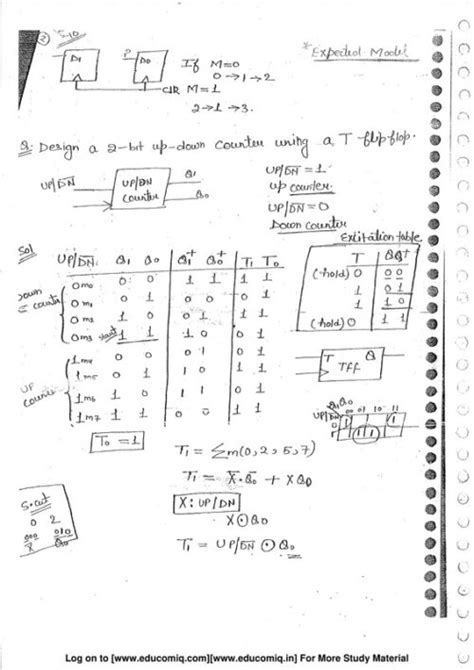 ② S.10
D1 D0 If M=0 * Expected Model
0→1→2
CLR M=1
2→1→3.
Q. Design a 2-bit up-down counter using a T flipflop.
UP/DN UP/DN counter Q1 Q0 UP/DN = 1
up counter.
UP/DN = 0
Down counter
Sol Exitation table
UP/DN Q1 Q0 Q1+ Q0+ T1 T0 T QQ+
Down counter 0 m0 0 0 1 1 1 1 (hold) 0 0 0
0 m1 0 1 0 0 0 1 1 0 1
0 m2 1 0 0 1 1 1 1 1 0
0 m3 start 1 1 1 0 0 1 (hold) 0 1 1
UP Counter 1 m4 0 0 0 1 0 1 T Q
1 m5 0 1 1 0 1 1 TFF
1 m6 1 0 1 1 0 1
1 m7 1 1 0 0 1 1 UP/DN Q1Q0 00 01 10 11
T0 = 1
T1 = Σm(0,2,5,7)
T1 = X̅·Q̅0 + XQ0
S.cut X: UP/DN
0 2 X⊙Q0
000 010
X̅ Q̅0 T1 = UP/DN ⊙ Q0
Log on to [www.educomiq.com][www.educomiq.in] For More Study Material